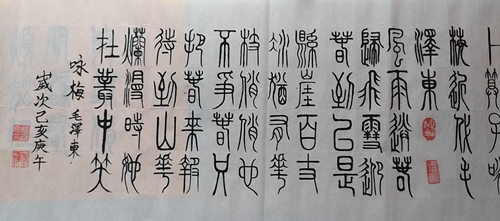 卜算子咏
梅近代毛
澤東
風雨送春
歸飛雪迎
春到已是
縣崖百丈
冰猶有華
枝俏俏也
不爭春只
把春來報
待到山華
爛漫時她
在叢中笑
咏梅毛澤東
歲次己亥庚午